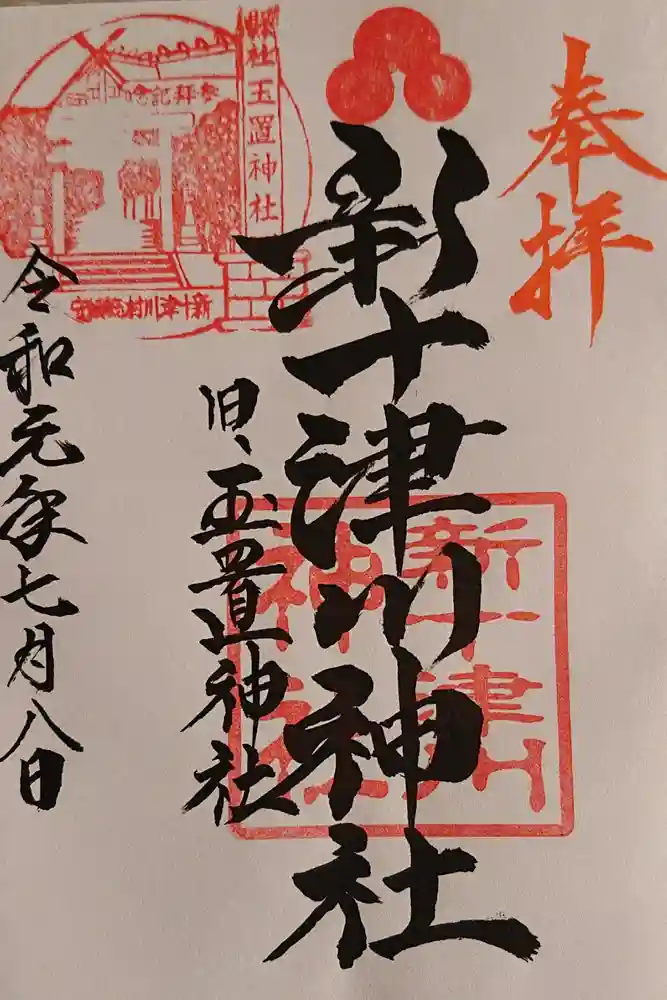 奉拝
新十津川神社
新十津川
神社
旧、玉置神社
縣社玉置神社
参拝記念
令和元年七月八日